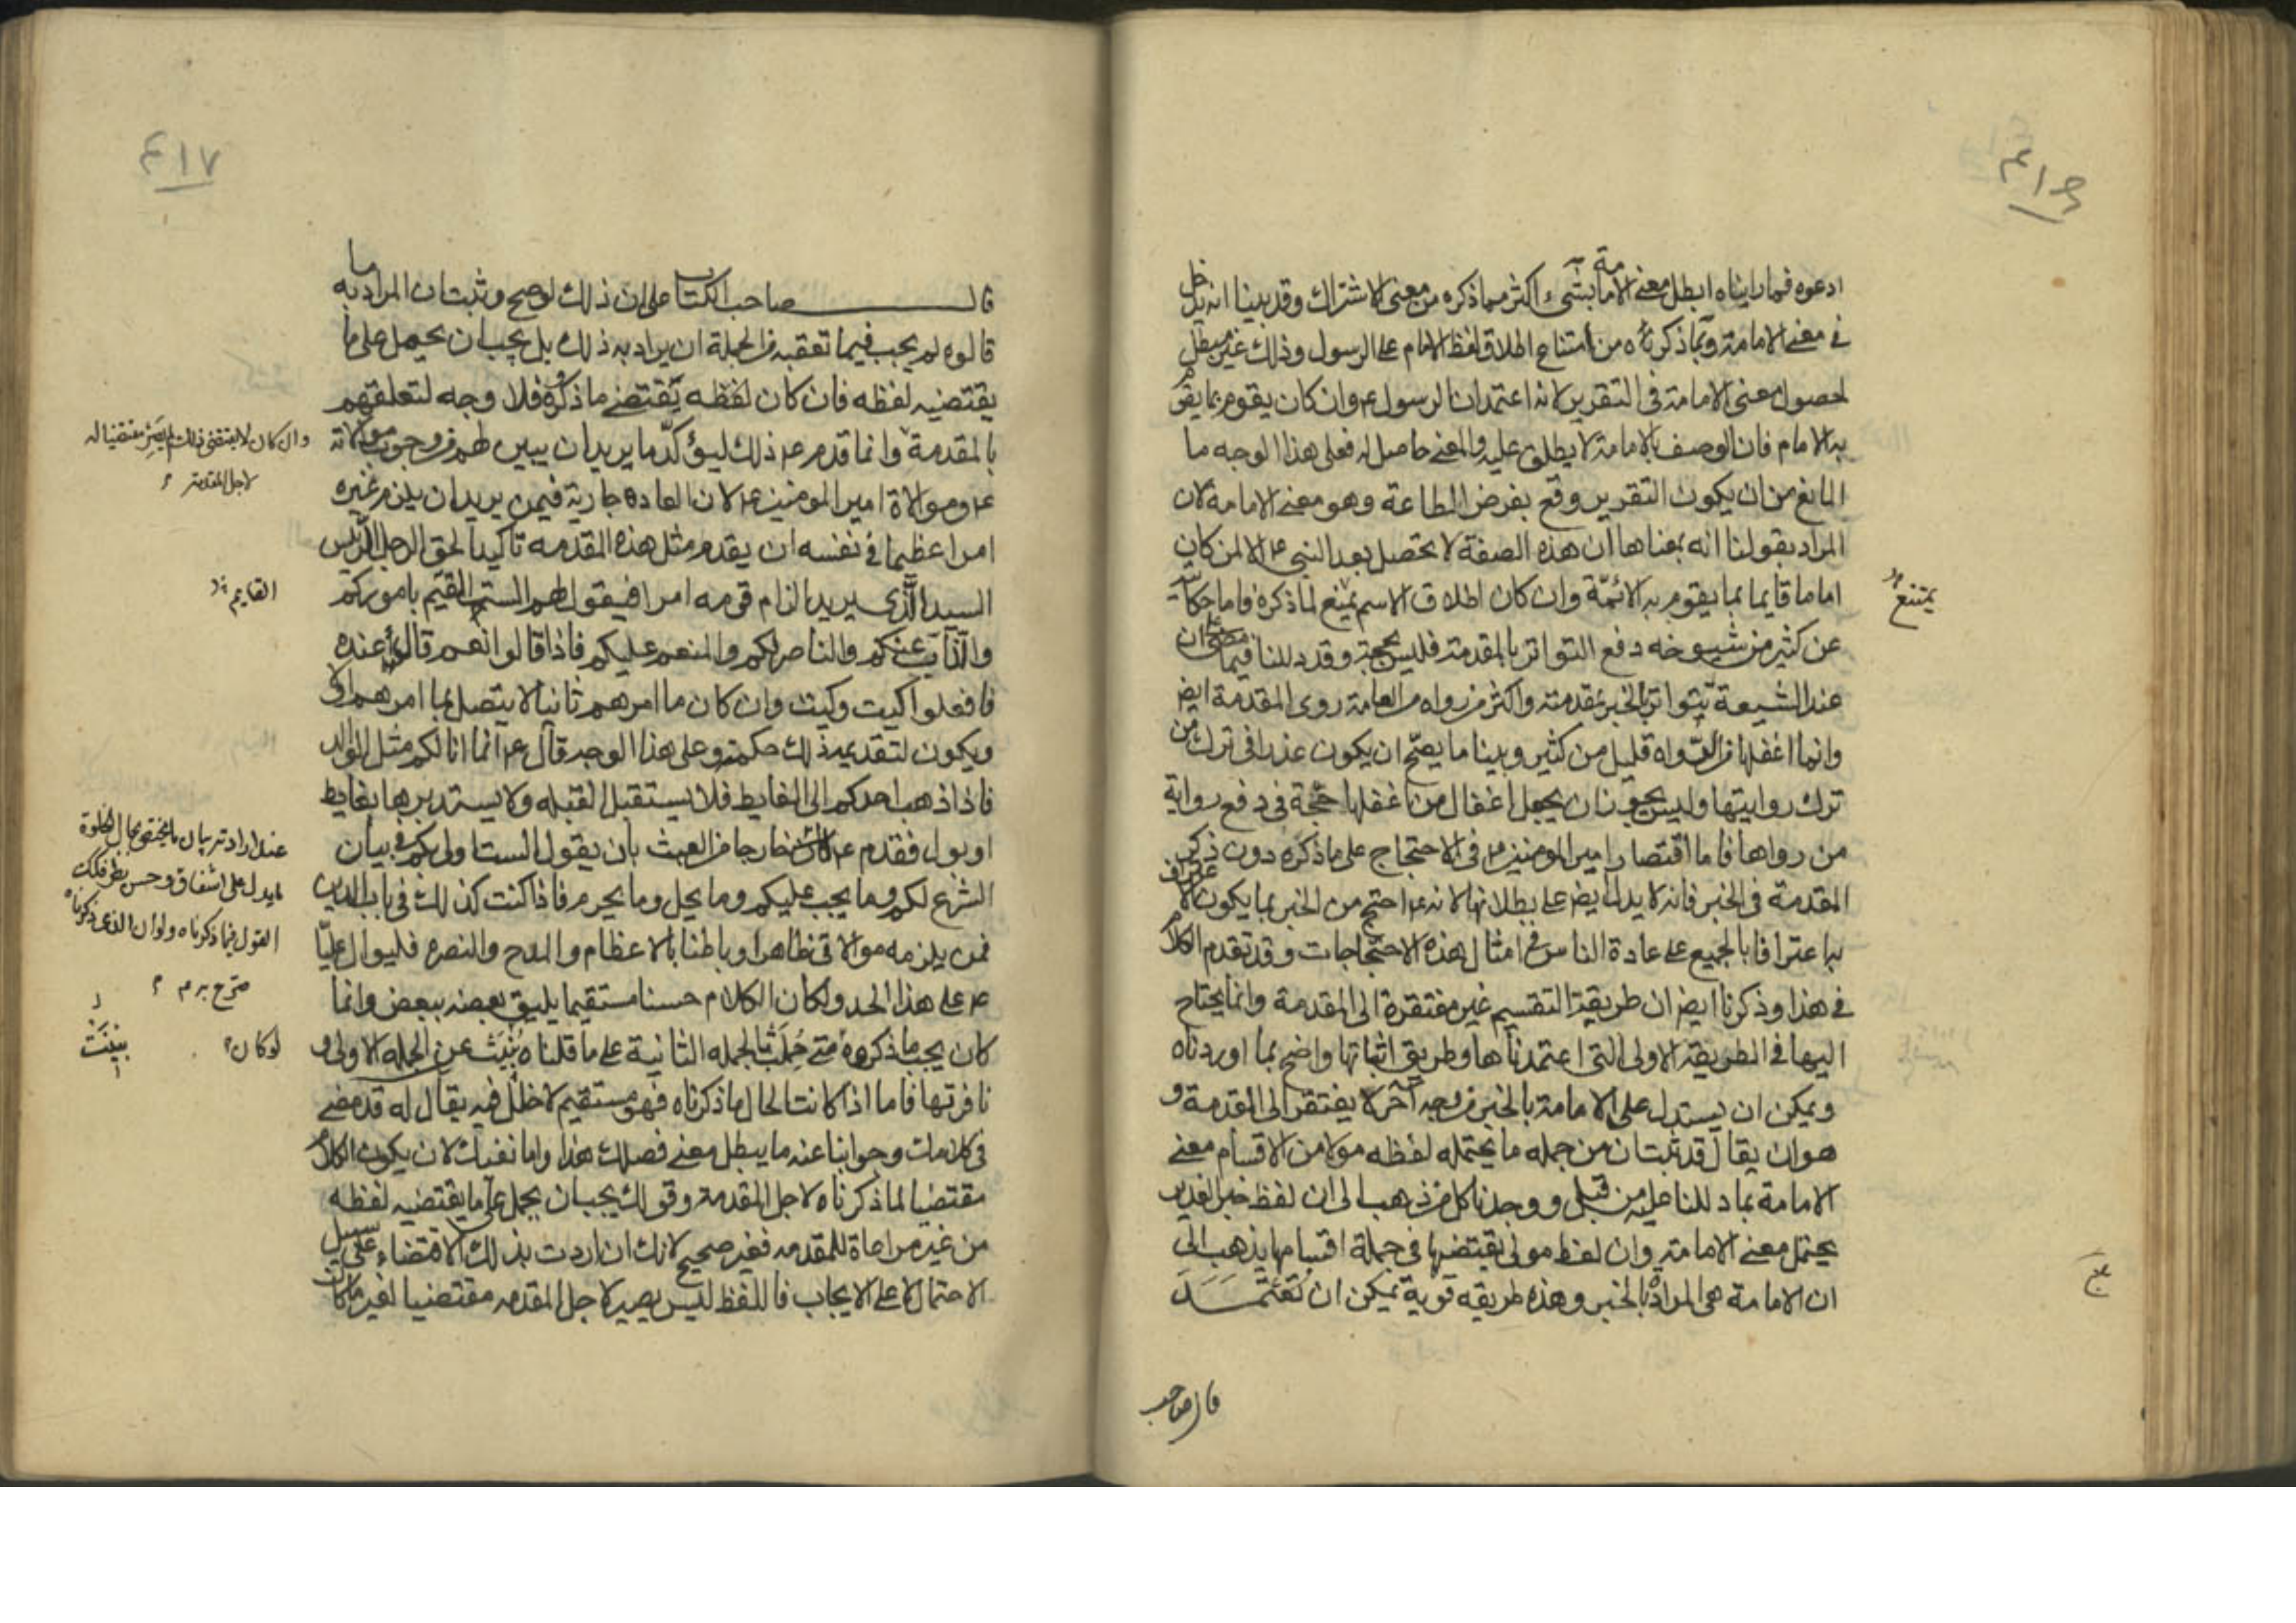 ٤١٦
ادعوه فما رايناه ابطل معنى الامامة بشىء اكثر مما ذكره من معنى الاشتراك وقد بينا انه يدخل
فى معنى الامامة وبما ذكرناه من امتناع اطلاق لفظ الامام على الرسول وذلك غير مبطل
لحصول معنى الامامة فى التقرير لانه اعتمد ان الرسول ع وان كان يقوم بما يقوم
به الامام فان الوصف بالامامة لا يطلق عليه والمعنى حاصل له فعلى هذا الوجه ما
المانع من ان يكون التقرير وقع بفرض الطاعة وهو معنى الامامة لان
المراد بقولنا انه بمعناها ان هذه الصفة لا تحصل بعد النبى ع الا لمن كان
اماما قايما بما يقوم به الائمّة وان كان اطلاق الاسم يمنع لما ذكره فاما حكايته
يمتنع
عن كثير من شيوخه دفع التواتر بالمقدمة فليس بحجة وقد دللنا فيما مضى ان
عند الشيعة يتواتر الخبر بمقدمته واكثر من رواه من العامة روى المقدمة ايض
وانما اغفلها من الرواه قليل من كثير وبينا ما يصحّ ان يكون عذرا فى ترك من
ترك روايتها وليس يجوز ان يجعل اغفال من اغفلها حجّة فى دفع رواية
من رواها فاما اقتصار امير المومنين ع فى الاحتجاج على ما ذكره دون ذكر
المقدمة فى الخبر فانه لا يدل ايض على بطلانها لانه ع احتج من الخبر بما يكون الاعتراف
به اعترافا بالجميع على عادة الناس فى امثال هذه الاحتجاجات وقد تقدم الكلام
فى هذا وذكرنا ايض ان طريقة التقسيم غير مفتقرة الى المقدمة وانما يحتاج
اليها فى الطريقة الاولى التى اعتمدناها وطريق اثباتها واضح بما اوردناه
ويمكن ان يستدل على الامامة بالخبر من وجه آخر لا يفتقر الى المقدمة و
هو ان يقال قد ثبت ان من جمله ما يحتمله لفظه مولا من الاقسام معنى
الامامة بما دللنا عليه من قبل ووجدنا كل من ذهب الى ان لفظ خبر الغدير
يحتمل معنى الامامة وان لفظ مولى يقتضيها فى جملة اقسامها يذهب الى
ان الامامة هى المرادة بالخبر وهذه طريقه قوية يمكن ان تُعتَمَد
قال صاحب
٤١٧
قال صاحب الكتاب على ان ذلك لو صح وثبت ان المراد به ما
قالوه لم يجب فيما تعقبه من الجملة ان يراد به ذلك بل يجب ان يحمل على ما
يقتضيه لفظه فان كان لفظه يقتضى ما ذكروه فلا وجه لتعلقهم
وان كان لا يقتضى ذلك لم يصر مقتضيا له
لاجل المقدمة
بالمقدمة وانما قدم ع ذلك ليؤكّد ما يريد ان يبين لهم من وجوب موالاته
ع وموالاة امير المومنين ع لان العادة جارية فيمن يريد ان يلزم غيره
امرا عظيما فى نفسه ان يقدم مثل هذه المقدمه تاكيدا لحق الرجل الرئيس
السيد الّذى يريد الزام قومه امرا فيقول لهم الست القيّم باموركم
القايم
والذابّ عنكم والناصر لكم والمنعم عليكم فاذا قالوا نعم قال عنده
فافعلوا كيت وكيت وان كان ما امرهم ثانيا لا يتصل بما امرهم اولا
ويكون لتقديمه ذلك حكمة وعلى هذا الوجه قال ع انما انا لكم مثل الوالد
فاذا ذهب احدكم الى الغايط فلا يستقبل القبله ولا يستدبرها بغايط
او بول فقدم ع خارجا من العبث بان يقول الست اولى بكم فى بيان
الشرع لكم وما يجب عليكم وما يحل وما يحرم فاذا كنت كذلك فى باب الدين
فمن يلزمه موالاتى ظاهرا وباطنا بالاعظام والمدح والنصره فليوال عليّا
ع على هذا الحد ولكان الكلام حسنا مستقيما يليق بعضه ببعض وانما
صرّح به
كان يجب ما ذكروه متى حُمِلت الجمله الثانية على ما قلناه عن الجمله الاولى و
لو كان
نافرتها فاما اذا كانت الحال ما ذكرناه فهو مستقيم لا خلل فيه يقال له قد مضى
فى كلامك وجوابنا عنه ما يبطل معنى فصلك هذا واما نفيك لان يكون الكلام
مقتضيا لما ذكرناه لاجل المقدمة وقولك يجب ان يحمل على ما يقتضيه لفظه
من غير مراعاة للمقدمه فغير صحيح لانك ان اردت بذلك الاقتضاء على سبيل
الاحتمال لا على الايجاب فاللفظ ليس يصير لاجل المقدمه مقتضيا لغير ما كان